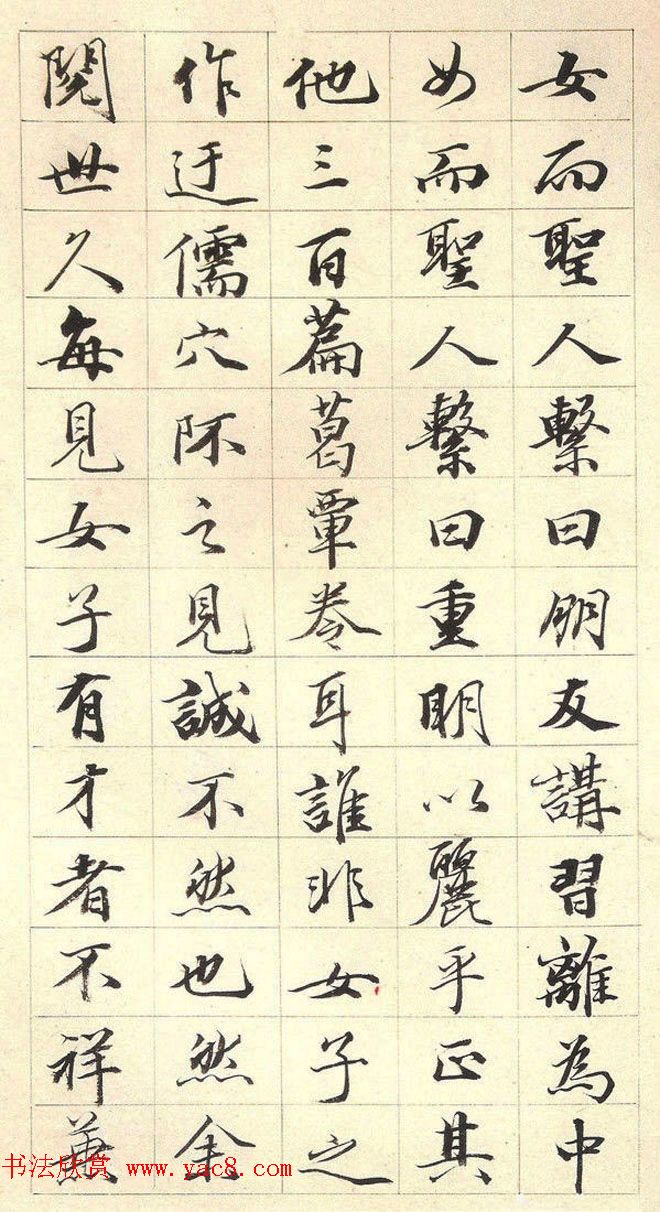 女而聖人繫曰朋友講習離為中
女而聖人繫曰重明以麗乎正其
他三百篇葛覃卷耳誰非女子之
作迂儒穴阫之見誠不然也然余
閱世久每見女子有才者不祥兼
书法欣赏 www.yac8.com